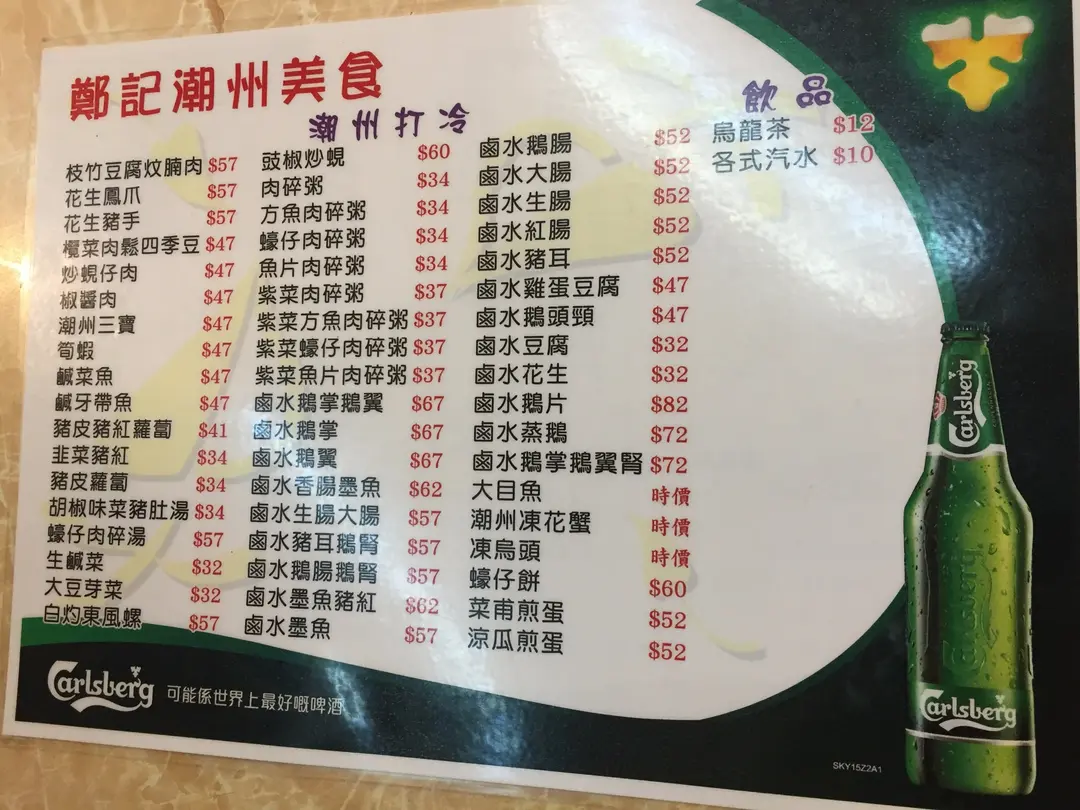 鄭記潮州美食
潮州打冷
枝竹豆腐炆腩肉 $57
花生鳳爪 $57
花生豬手 $57
欖菜肉鬆四季豆 $47
炒蜆仔肉 $47
椒醬肉 $47
潮州三寶 $47
筍蝦 $47
鹹菜魚 $47
鹹牙帶魚 $47
豬皮豬紅蘿蔔 $41
韭菜豬紅 $34
豬皮蘿蔔 $34
胡椒味菜豬肚湯 $34
蠔仔肉碎湯 $57
生鹹菜 $32
大豆芽菜 $32
白灼東風螺 $57
豉椒炒蜆 $60
肉碎粥 $34
方魚肉碎粥 $34
蠔仔肉碎粥 $34
魚片肉碎粥 $34
紫菜肉碎粥 $37
紫菜方魚肉碎粥 $37
紫菜蠔仔肉碎粥 $37
紫菜魚片肉碎粥 $37
鹵水鵝掌鵝翼 $67
鹵水鵝掌 $67
鹵水鵝翼 $67
鹵水香腸墨魚 $62
鹵水生腸大腸 $57
鹵水豬耳鵝腎 $57
鹵水鵝腸鵝腎 $57
鹵水墨魚豬紅 $62
鹵水墨魚 $57
鹵水鵝腸 $52
鹵水大腸 $52
鹵水生腸 $52
鹵水紅腸 $52
鹵水豬耳 $52
鹵水雞蛋豆腐 $47
鹵水鵝頭頸 $47
鹵水豆腐 $32
鹵水花生 $32
鹵水鵝片 $82
鹵水蒸鵝 $72
鹵水鵝掌鵝翼腎 $72
大目魚 時價
潮州凍花蟹 時價
凍烏頭 時價
蠔仔餅 $60
菜甫煎蛋 $52
涼瓜煎蛋 $52
飲品
烏龍茶 $12
各式汽水 $10
Carlsberg
Carlsberg
Carlsberg
Carlsberg 可能係世界上最好嘅啤酒
SKY15Z2A1